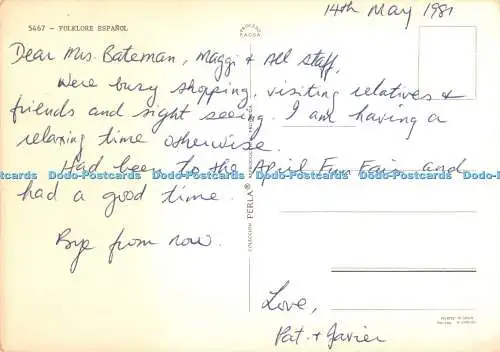 14th May 1981
5467 - FOLKLORE ESPAÑOL
Dear Mrs. Bateman, Maggi & All Staff,
Were busy shopping, visiting relatives &
friends and sight seeing. I am having a
relaxing time otherwise.
Had been to the April Fair and
had a good time.
Bye from now.
Love,
Pat. & Javier
COLECCION PERLA®
Dodo-Postcards Dodo-Postcards Dodo-Postcards Dodo-Postcards Dodo-Postcards